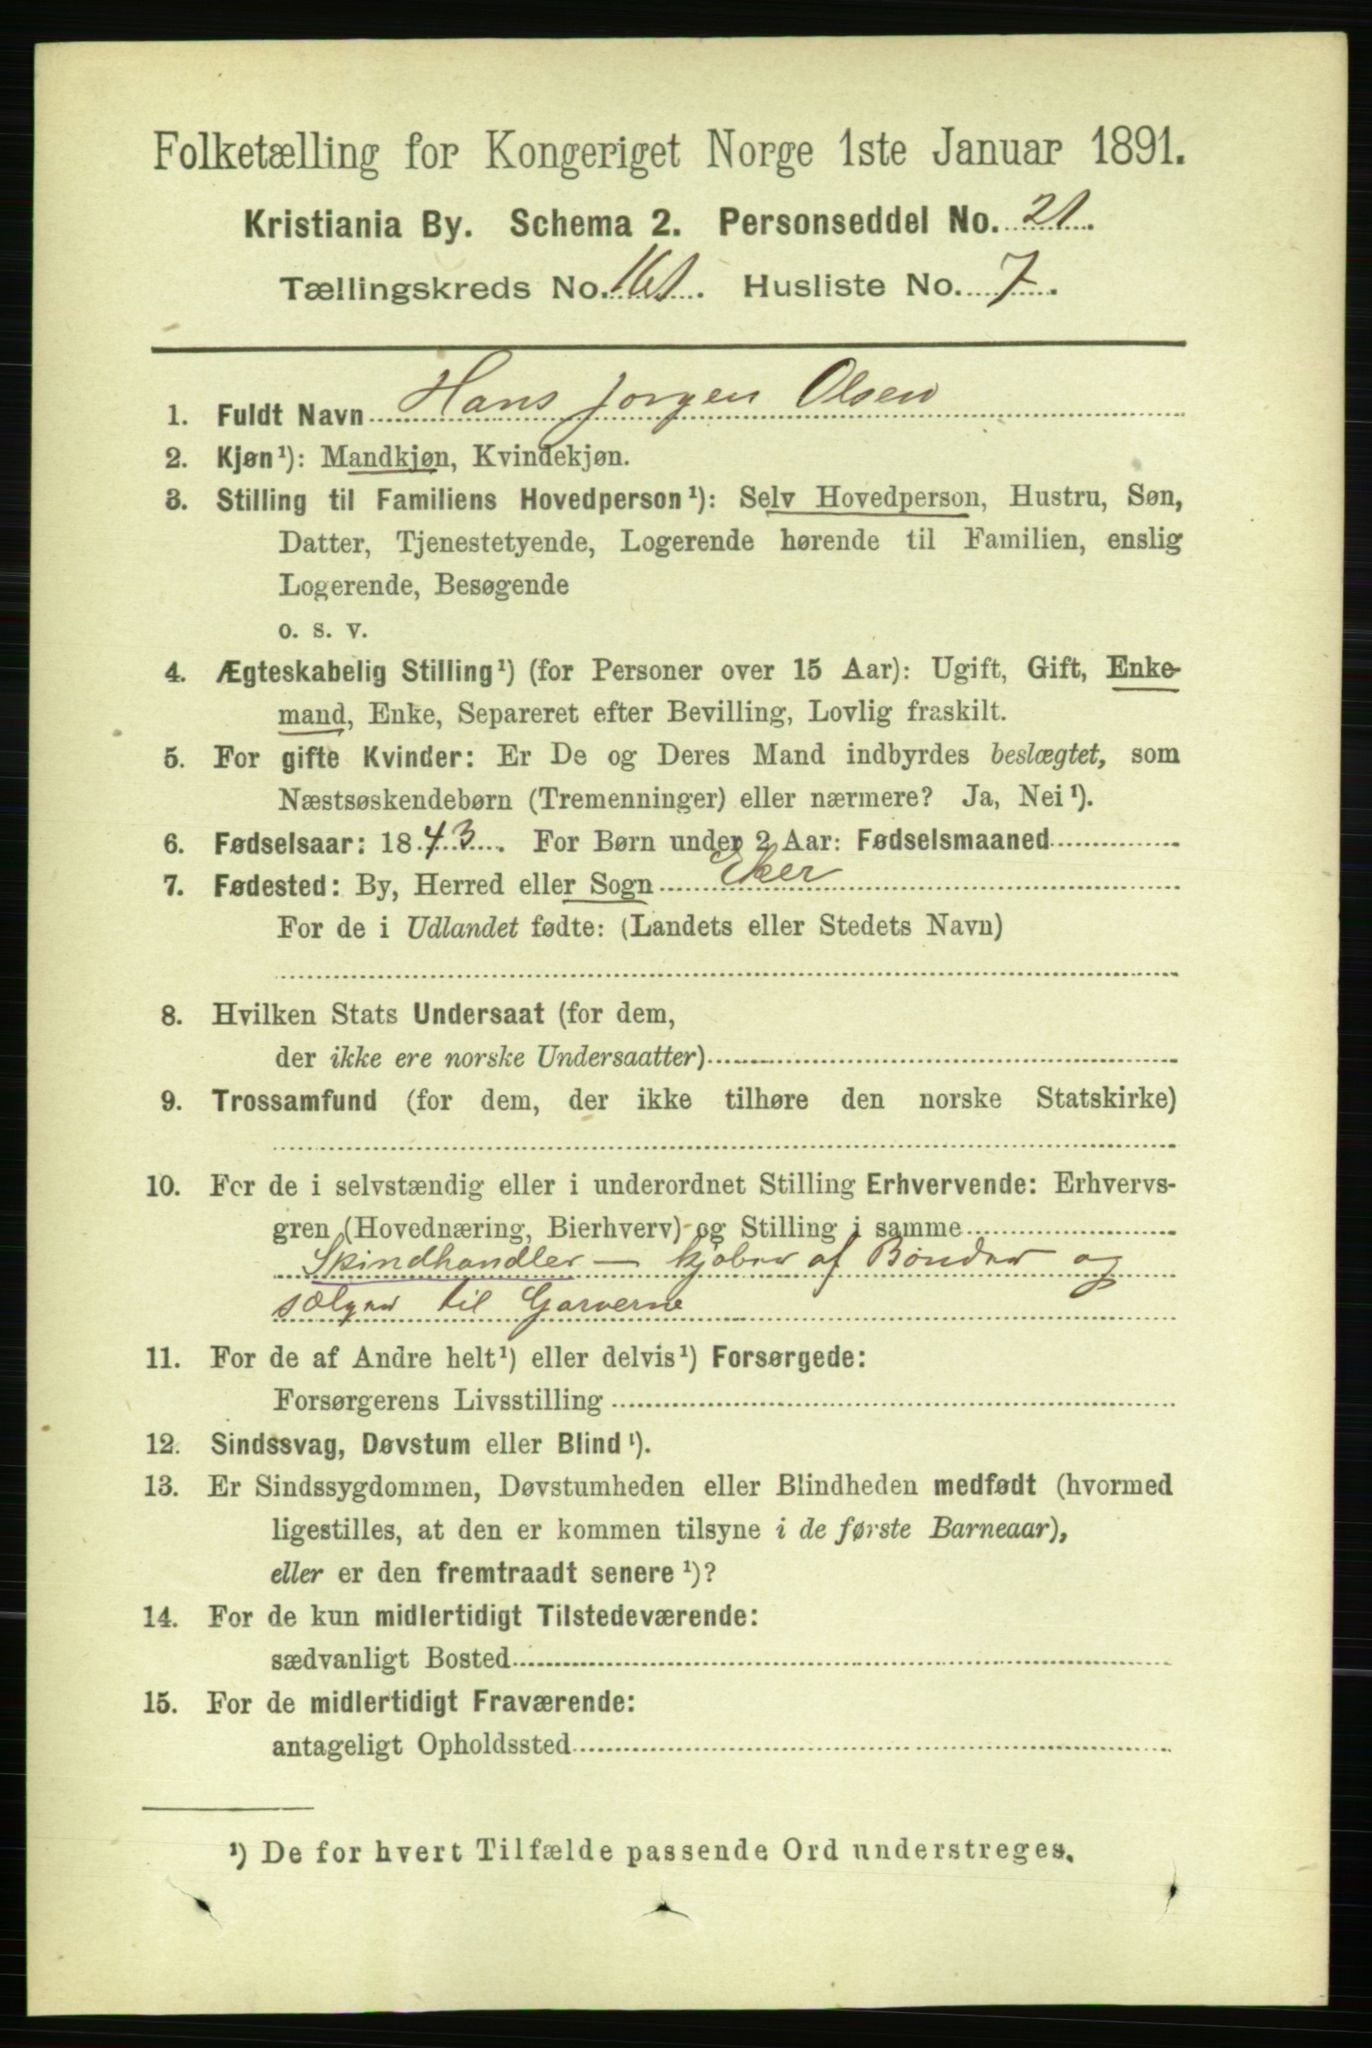 Folketælling for Kongeriget Norge 1ste Januar 1891.
Kristiania By. Schema 2. Personseddel No. 21.
Tællingskreds No. 161. Husliste No. 7.
1. Fuldt Navn Hans Jorgen Olsen
2. Kjøn¹): Mandkjøn, Kvindekjøn.
3. Stilling til Familiens Hovedperson¹): Selv Hovedperson, Hustru, Søn,
Datter, Tjenestetyende, Logerende hørende til Familien, enslig
Logerende, Besøgende
o. s. v.
4. Ægteskabelig Stilling¹) (for Personer over 15 Aar): Ugift, Gift, Enke-
mand, Enke, Separeret efter Bevilling, Lovlig fraskilt.
5. For gifte Kvinder: Er De og Deres Mand indbyrdes beslægtet, som
Næstsøskendebørn (Tremenninger) eller nærmere? Ja, Nei¹).
6. Fødselsaar: 1843. For Børn under 2 Aar: Fødselsmaaned
7. Fødested: By, Herred eller Sogn Eker
For de i Udlandet fødte: (Landets eller Stedets Navn)
8. Hvilken Stats Undersaat (for dem,
der ikke ere norske Undersaatter)
9. Trossamfund (for dem, der ikke tilhøre den norske Statskirke)
10. For de i selvstændig eller i underordnet Stilling Erhvervende: Erhvervs-
gren (Hovednæring, Bierhverv) og Stilling i samme
Skindhandler — kjøber af Bønder og
sælger til Garverne
11. For de af Andre helt¹) eller delvis¹) Forsørgede:
Forsørgerens Livsstilling
12. Sindssvag, Døvstum eller Blind¹).
13. Er Sindssygdommen, Døvstumheden eller Blindheden medfødt (hvormed
ligestilles, at den er kommen tilsyne i de første Barneaar),
eller er den fremtraadt senere¹)?
14. For de kun midlertidigt Tilstedeværende:
sædvanligt Bosted
15. For de midlertidigt Fraværende:
antageligt Opholdssted
¹) De for hvert Tilfælde passende Ord understreges.